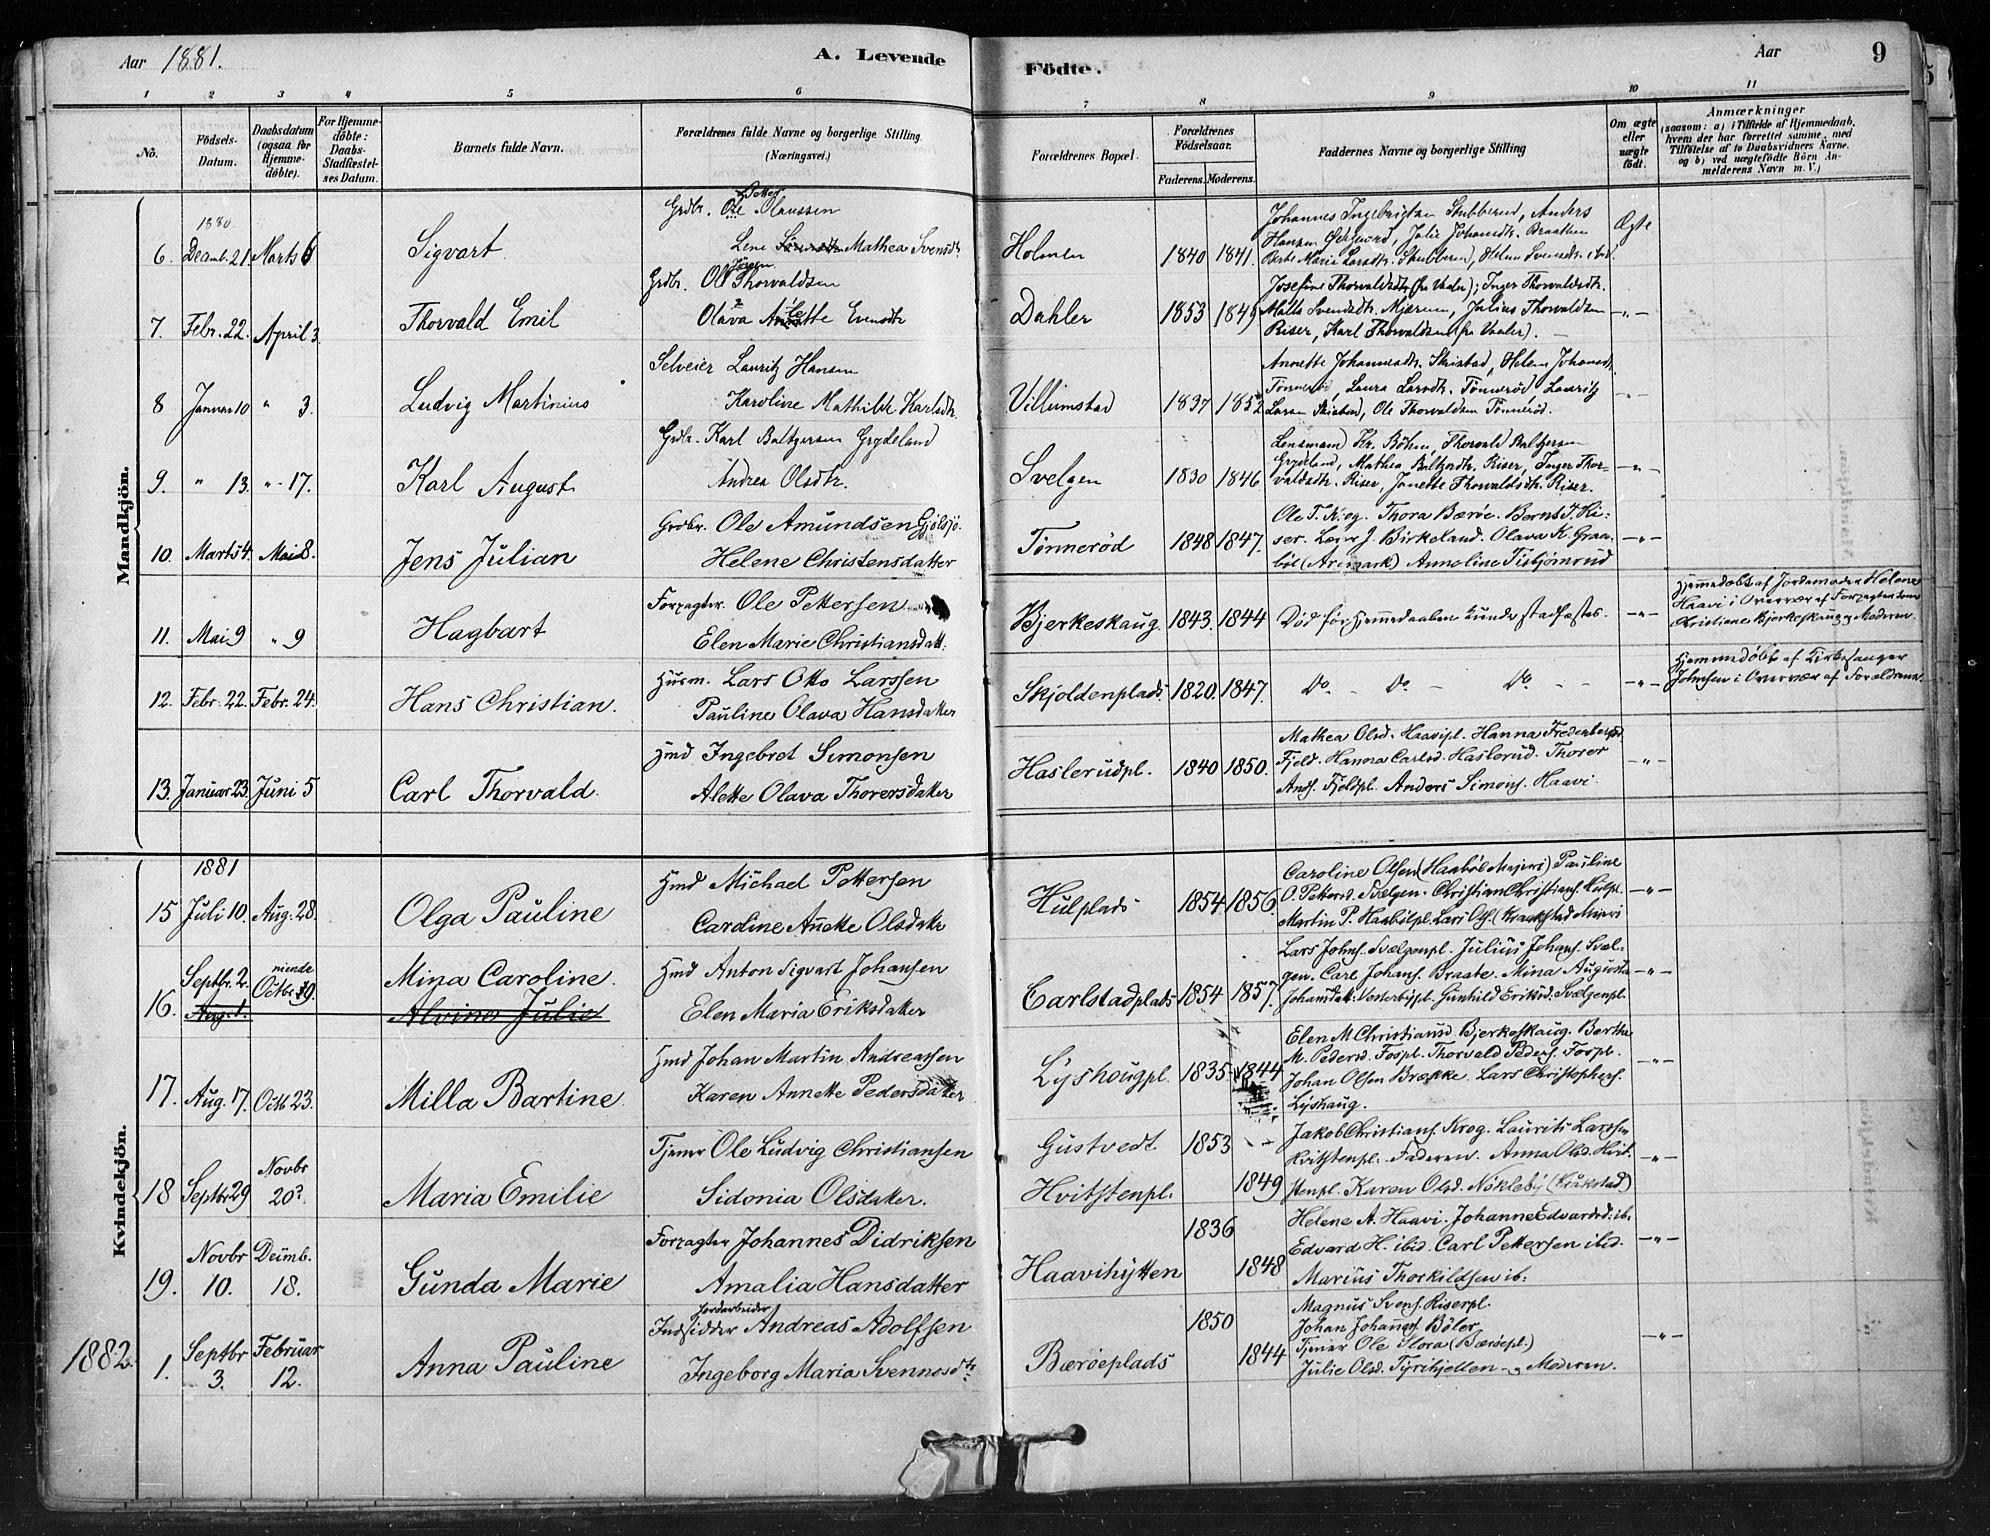 Aar 1881.
A. Levende
Födte.
Aar
9
1 2 3 4 5 6 7 8 9 10 11
No.
Födsels-Datum.
Daabsdatum (ogsaa for Hjemme-döbte).
For Hjemme-döbte: Daabs-Stadfæstel-ses Datum.
Barnets fulde Navn.
Forældrenes fulde Navne og borgerlige Stilling. (Næringsvei.)
Forældrenes Bopæl.
Forældrenes Födselsaar.
Faderens. Moderens.
Faddernes Navne og borgerlige Stilling
Om ægte eller uægte födt.
Anmærkninger
(saasom: a) i Tilfælde af Hjemmedaab, hvem der har forrettet samme, med Tilföielse af to Daabsvidners Navne. og b) ved uægtefödte Börn An-melderens Navn m. V.)
Mandkjön.
1880
6. Decemb. 21. Marts 6 Sigvart
Grdbr. Ole Petter Olaussen
Lene Mathea Svensdtr.
Holmen 1840 1841.
Johannes Ingebrigtsen Stubberud, Anders
Hansen, Julie Johansdtr. Braathen
Berte Maria Larsdtr. Stubberud, Helene Svensdtr. ibid.
Ægte
7. Febr. 22. April 3. Thorvald Emil
Grdbr. Ole Jörgen Thorvaldsen
Olava Anette Evensdtr
Dahler 1853 1849
Josefine Thorvaldsdtr (fra Vaaler); Inger Thorvaldsdtr.
Malla Svendsdtr. Mjærum, Julius Thorvaldsen
Riser, Karl Thorvaldsen (fra Vaaler). –
–„–
8 Januar 10 " 3. Ludvig Martinius
Selveier Lauritz Hansen
Karoline Mathilde Karlsdtr.
Villumstad 1837 1852
Annette Johannesdtr. Skristad, Helene Johannesdtr.
Tønnerød, Laura Larsdtr. Tønnerød, Lauritz
Larsen Skristad, Ole Thorvaldsen Tönneröd.
–„–
9. " 13. "-17. Karl August
Grdbr. Karl Baltzersen Grydeland
Andrea Olsdtr.
Svelgen 1830 1846
Lensmand Kr. Böhn, Thorvald Baltzersen
Grydeland, Mathea Baltzerdtr. Riser, Inger Thor-
valdsdtr. Riser, Janette Thorvaldsdtr. Riser.
–„–
10. Marts 4. Mai 8. Jens Julian
Grdbr. Ole Amundsen Gjölsjö.
Helene Christensdatter
Tönneröd 1848 1847.
Ole T. Krog. Thora Bæröe. Bernt T. Ri-
ser. Laura J. Birkeland. Olava K. Graa-
böl (Aremark) Anneline Tisbjörnrud
–„–
11. Mai 9 " 9 Hagbart
Forpagter. Ole Pettersen
Elen Marie Christiansdatt:
Bjerkeskaug. 1843. 1844
Död för Hjemmedaaben kunde stadfæstes.
–„–
Hjemmedöbt af Jordemoder Helene
Haavi i Overvær af Forpagter Jens
Christians Bjerkeskaug og Moderen.
12. Febr. 22. Febr. 24. Hans Christian.
Husm. Lars Otto Larssen
Pauline Olava Hansdatter
Skjoldenplads 1820. 1847.
Do. – Do. – Do. – –
–„–
Hjemmedöbt af Kirkesanger
Johnsen i Overvær af Forældrene.
13. Januar 23. Juni 5 Carl Thorvald.
Hmd Ingebret Simonsen
Alette Olava Thorersdatter
Haslerudpl. 1840 1850.
Mathea Olsd. Haavipl. Hanna Fredenbergsd.
Fjeld. Hanna Carlsd. Haslerud. Thorer
Ands. Fjeldpl. Anders Simons. Haavi
–„–
Kvindekjön.
1881
15 Juli 10. Aug. 28. Olga Pauline
Hmd Michael Pettersen
Cardine Anette Olsdatter
Hulplads 1854 1856.
Caroline Olsen (Haaböl Meieri) Pauline
O. Pettersd. Svælgen. Christian Christians. Hulpl.
Martin P. Haabölpl. Lars Ols. (Kraakstad Meieri
–„–
16. Septbr. 2. Aug. 1. niende Octbr. 9. Mina Caroline.
Alvine Julie
Hmd Anton Sigvart Johansen
Elen Maria Eriksdatter
Carlstadplads 1854 1857.
Lars Johns. Svælgenpl. Julius Johans. Svæl-
gen. Carl Johans. Braate. Mina Augusta
Johansdatt: Vesterbypl. Gunhild Eriksd. Svælgenpl.
–„–
17. Aug. 17. Octb 23. Milla Bartine
Hmd Johan Martin Andreassen
Karen Annette Pedersdatter
Lyshougpl. 1835 1844
Elen M Christiansd. Bjerkeskaug. Berthe
M. Pedersd. Fospl. Thorvald Peders. Fospl.
Johan Olsen Brække. Lars Christophers.
Lyshaug.
–„–
18 Septbr 29 Novbr 20? Maria Emilie
Tjener Ole Ludvig Christiansen
Sidonia Olsdatter.
Gustvedt 1853
Hvitstenpl. 1849
Jakob Christians. Krog. Laurits Larssen
Hvitstenpl. Faderen. Anna Olsd. Hvit-
stenpl. Karen Olsd. Nökleby (Kråkstad)
–„–
19. Novbr 10. Decmb. 18. Gunda Marie
Forpagter Johannes Didriksen
Amalia Hansdatter
Haavihytten 1836 1848
Helene A. Haavi. Johanne Edvardsd: ib.
Edvard H. ibid. Carl Pettersen ibid.
Marius Thorkildsen ib:
–„–
1882. 1. Septbr 3. Februar 12. Anna Pauline
Indsidder Jordarbeider Andreas Adolfsen
Ingeborg Maria Svennesdtr
Bæröeplads 1850 1844
Magnus Svens. Riserpl.
Johan Johanns. Böler
Tjener Ole Flora (Bæröepl.)
Julie Olsd. Tyrihjellen – og Moderen.
–„–